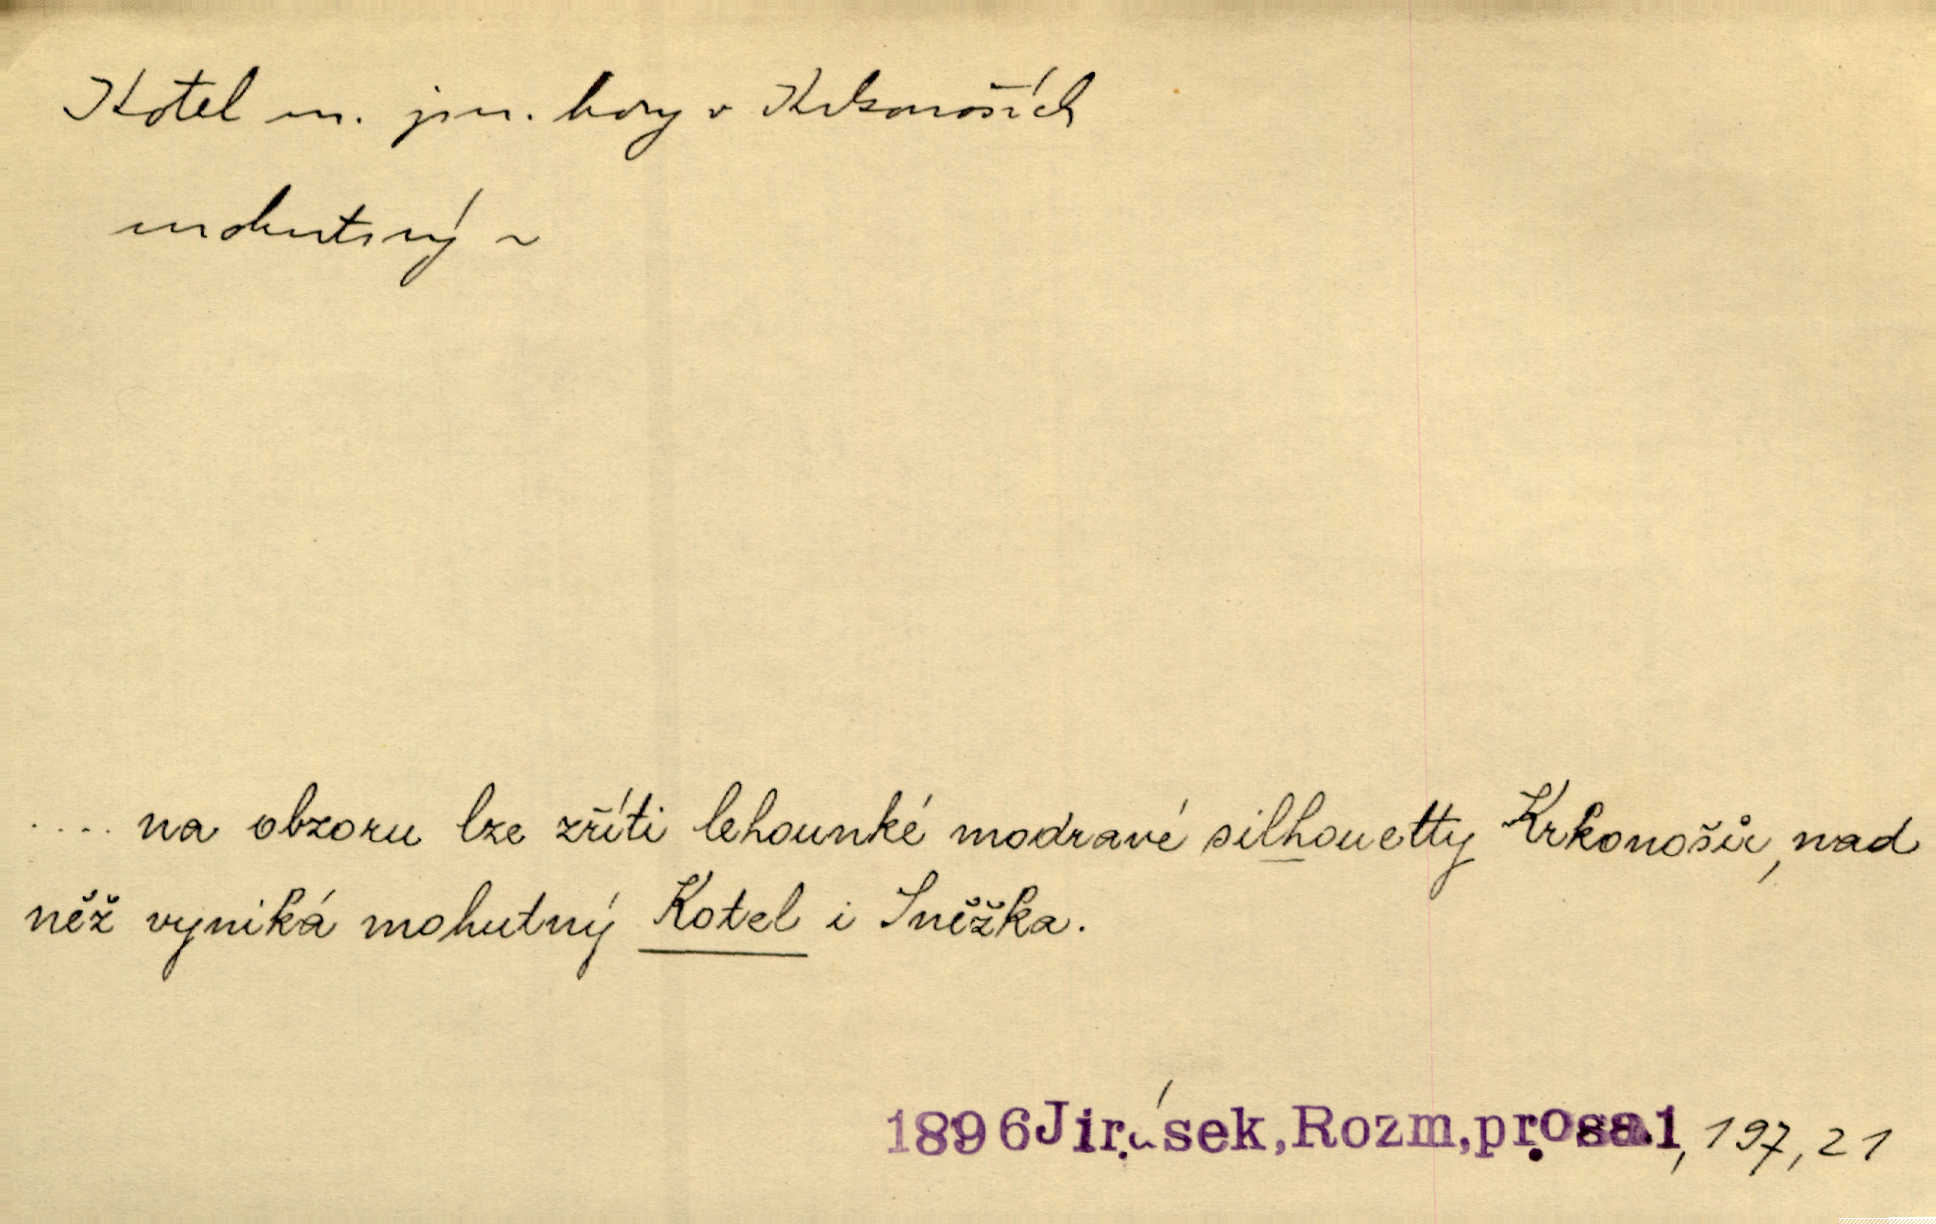 Kotel m. jm. hory v Krkonoších
mohutný ~
.... na obzoru lze zříti lehounké modravé silhouetty Krkonošů, nad
něž vyniká mohutný Kotel i Sněžka.
1896 Jirásek, Rozm, prosa 1, 197, 21